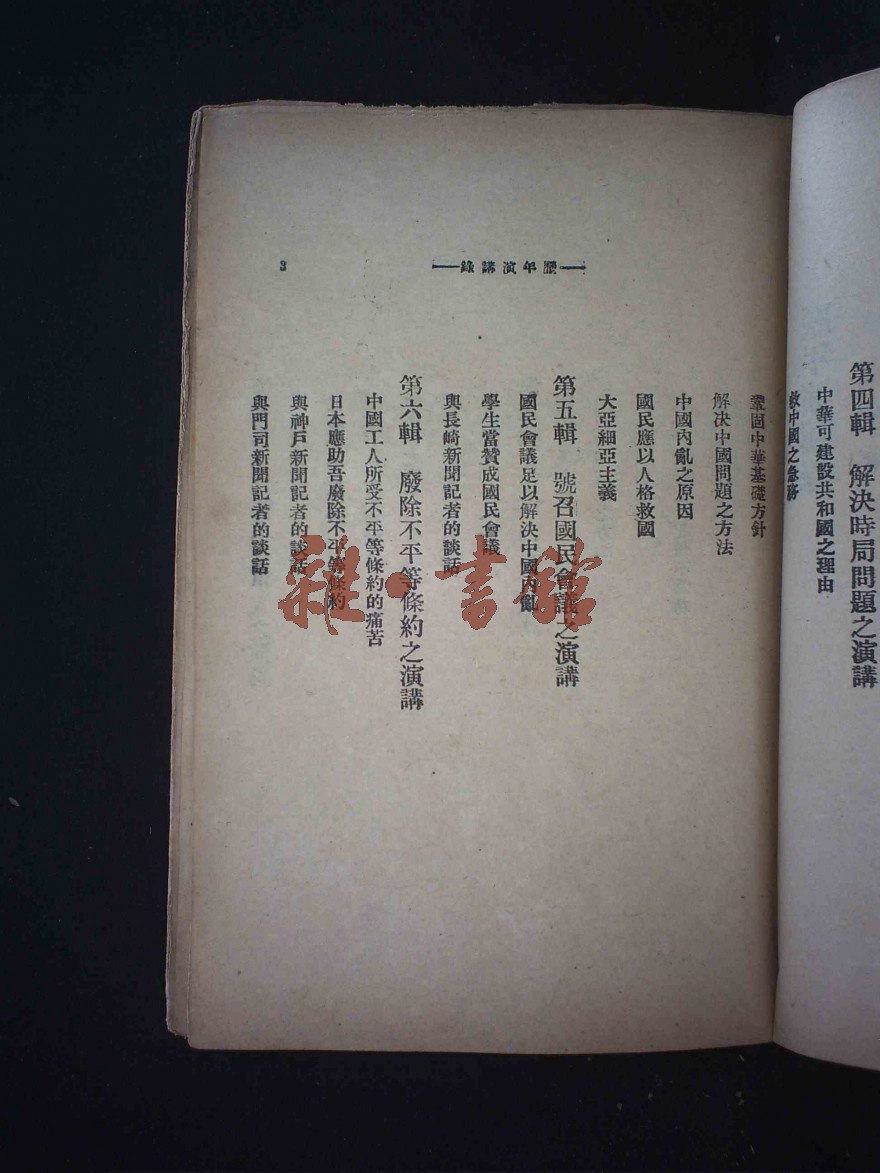 第四輯　解決時局問題之演講
中華可建設共和國之理由
救中國之急務
鞏固中華基礎方針
解決中國問題之方法
中國內亂之原因
國民應以人格救國
大亞細亞主義
第五輯　號召國民會議之演講
國民會議足以解決中國內亂
學生當贊成國民會議
與長崎新聞記者的談話
第六輯　廢除不平等條約之演講
中國工人所受不平等條約的痛苦
日本應助吾廢除不平等條約
與神戶新聞記者的談話
與門司新聞記者的談話
——歷年演講錄——
3
雜·書館